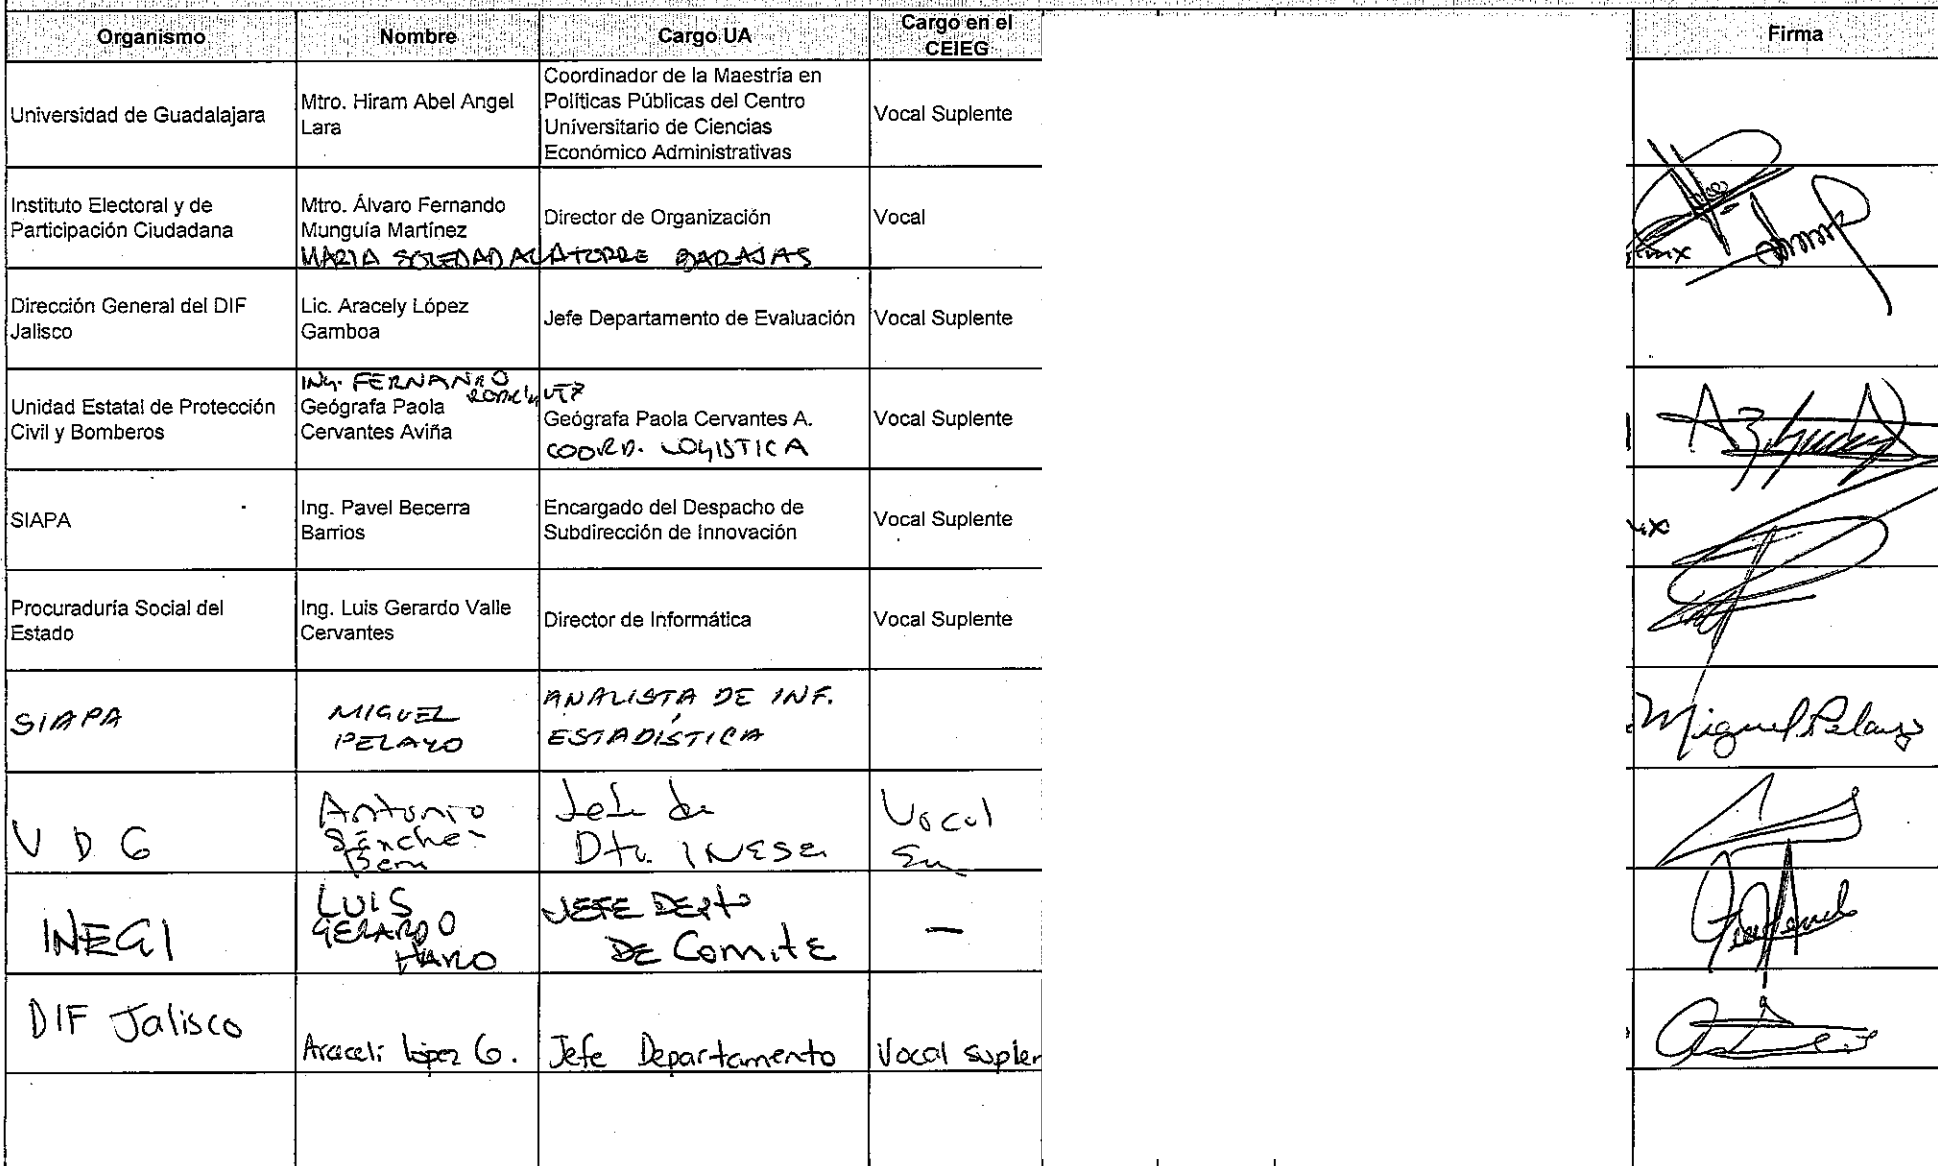 Organismo Nombre Cargo UA Cargo en el CEIEG Firma
Universidad de Guadalajara
Mtro. Hiram Abel Angel
Lara
Coordinador de la Maestría en
Políticas Públicas del Centro
Universitario de Ciencias
Económico Administrativas
Vocal Suplente
Instituto Electoral y de
Participación Ciudadana
Mtro. Álvaro Fernando
Munguía Martínez
Director de Organización
Vocal
MARIA SOLEDAD ALATORRE BARAJAS
Dirección General del DIF
Jalisco
Lic. Aracely López
Gamboa
Jefe Departamento de Evaluación
Vocal Suplente
Unidad Estatal de Protección
Civil y Bomberos
ING. FERNANDO
Geógrafa Paola
Cervantes Aviña
Geógrafa Paola Cervantes A.
COORD. LOGISTICA
Vocal Suplente
SIAPA
Ing. Pavel Becerra
Barrios
Encargado del Despacho de
Subdirección de Innovación
Vocal Suplente
Procuraduría Social del
Estado
Ing. Luis Gerardo Valle
Cervantes
Director de Informática
Vocal Suplente
SIAPA
MIGUEL
PELAYO
ANALISTA DE INF.
ESTADÍSTICA
Miguel Pelayo
U D G
Antonio
Sánchez
Jefe de
Dto. INESER
Vocal
INEGI
LUIS
GERARDO
HARO
JEFE DEPTO
DE Comité
—
DIF Jalisco
Araceli López G.
Jefe Departamento
Vocal suplen